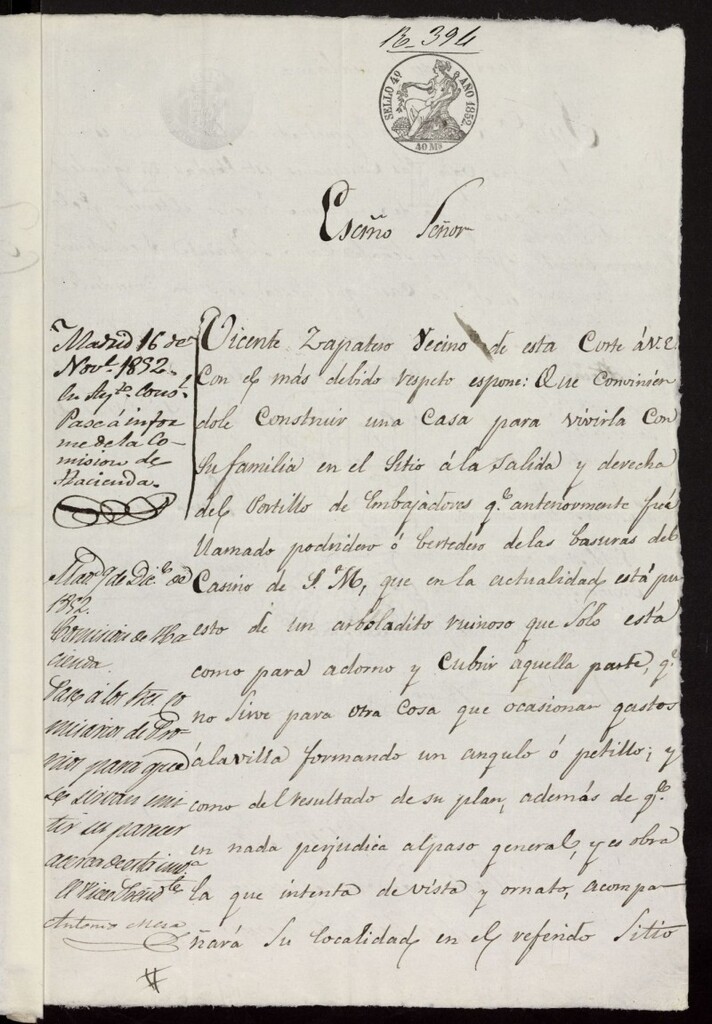 R_394
SELLO 4º AÑO 1852
40 Ms
Escmo Señor
Madrid 16 de
Novl. 1852.
En Aytº. Consl.
Pase á infor
me de la Co-
mision de
Hacienda.
Mad 9 de Dic.e de
1852.
Comision de Ha
cienda.
Pase á los Sres. Co
misarios de Pro-
pios para que
se sirvan emi
tir su parecer
acerca de este
El Vice Presid.te
Antonio Mesa
Vicente Zapatero Vecino de esta Corte á V.E.
Con el más debido respeto espone: Que Convinien
dole Construir una Casa para vivirla Con
su familia en el Sitio á la salida y derecha
del Portillo de Embajadores q.e anteriormente fué
llamado podridero ó bertedero de las basuras del
Casino de S. M, que en la actualidad está pu
esto de un arboladito ruinoso que Solo está
como para adorno y Cubrir aquella parte, q.e
no Sirve para otra Cosa que ocasionar gastos
á la villa formando un angulo ó petillo; y
como del resultado de su plan, además de q.e
en nada perjudica al paso general, y es obra
la que intenta de vista y ornato, acompa-
ñará Su localidad en el referido Sitio